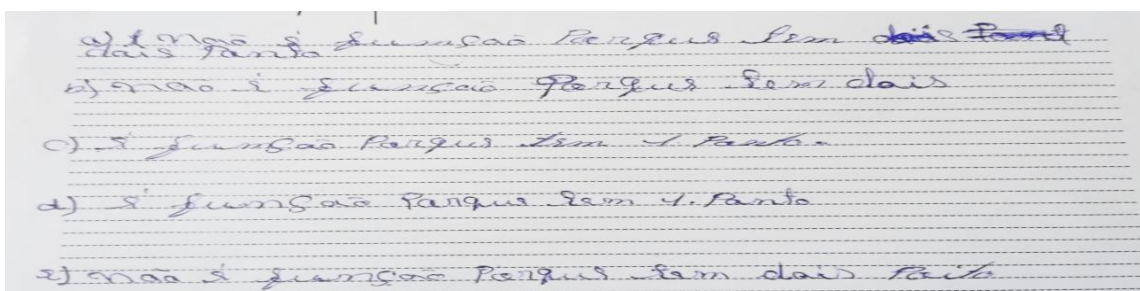 a) Não é função Porque tem dois
dois Ponto
b) não é função Porque tem dois
c) é função Porque tem 1 Ponto.
d) é função Porque tem 1. Ponto
e) não é função Porque tem dois